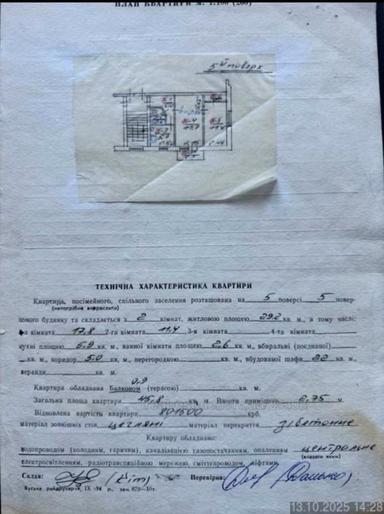 ПЛАН КВАРТИРИ М. 1:100 (200)
5й поверх
ТЕХНІЧНА ХАРАКТЕРИСТИКА КВАРТИРИ
Квартира, посімейного, спільного заселення розташована на 5 поверсі 5 повер-
(непотрібне викреслити)
хового будинку та складається з 2 кімнат, житловою площею 29.2 кв. м., в тому числі:
1-а кімната 17,8 2-га кімната 11,4 3-я кімната кв. м. 4-та кімната
кухні площею 5.9 кв. м., ванної кімнати площею 2.6 кв. м., вбиральні (поєднаної)
кв. м., коридор 5.0 кв. м., перегородкою кв. м., вбудованої шафи 2.2 кв. м.,
веранди кв. м.
0,9
Квартира обладнана балконом (терасою) кв. м.
Загальна площа квартири 45,8 кв. м. Висота приміщень 2,75 м.
Відновлена вартість квартири крб.
матеріал зовнішніх стін цегляні матеріал перекриття з/бетонне
Квартиру обладнано:
водопроводом (холодним, гарячим), каналізацією газопостачанням, опаленням центральне
електроосвітленням, радіотрансляційною мережею, сміттєпроводом, ліфтами.
Склав: Перевірив:
13.10.2025 14:28